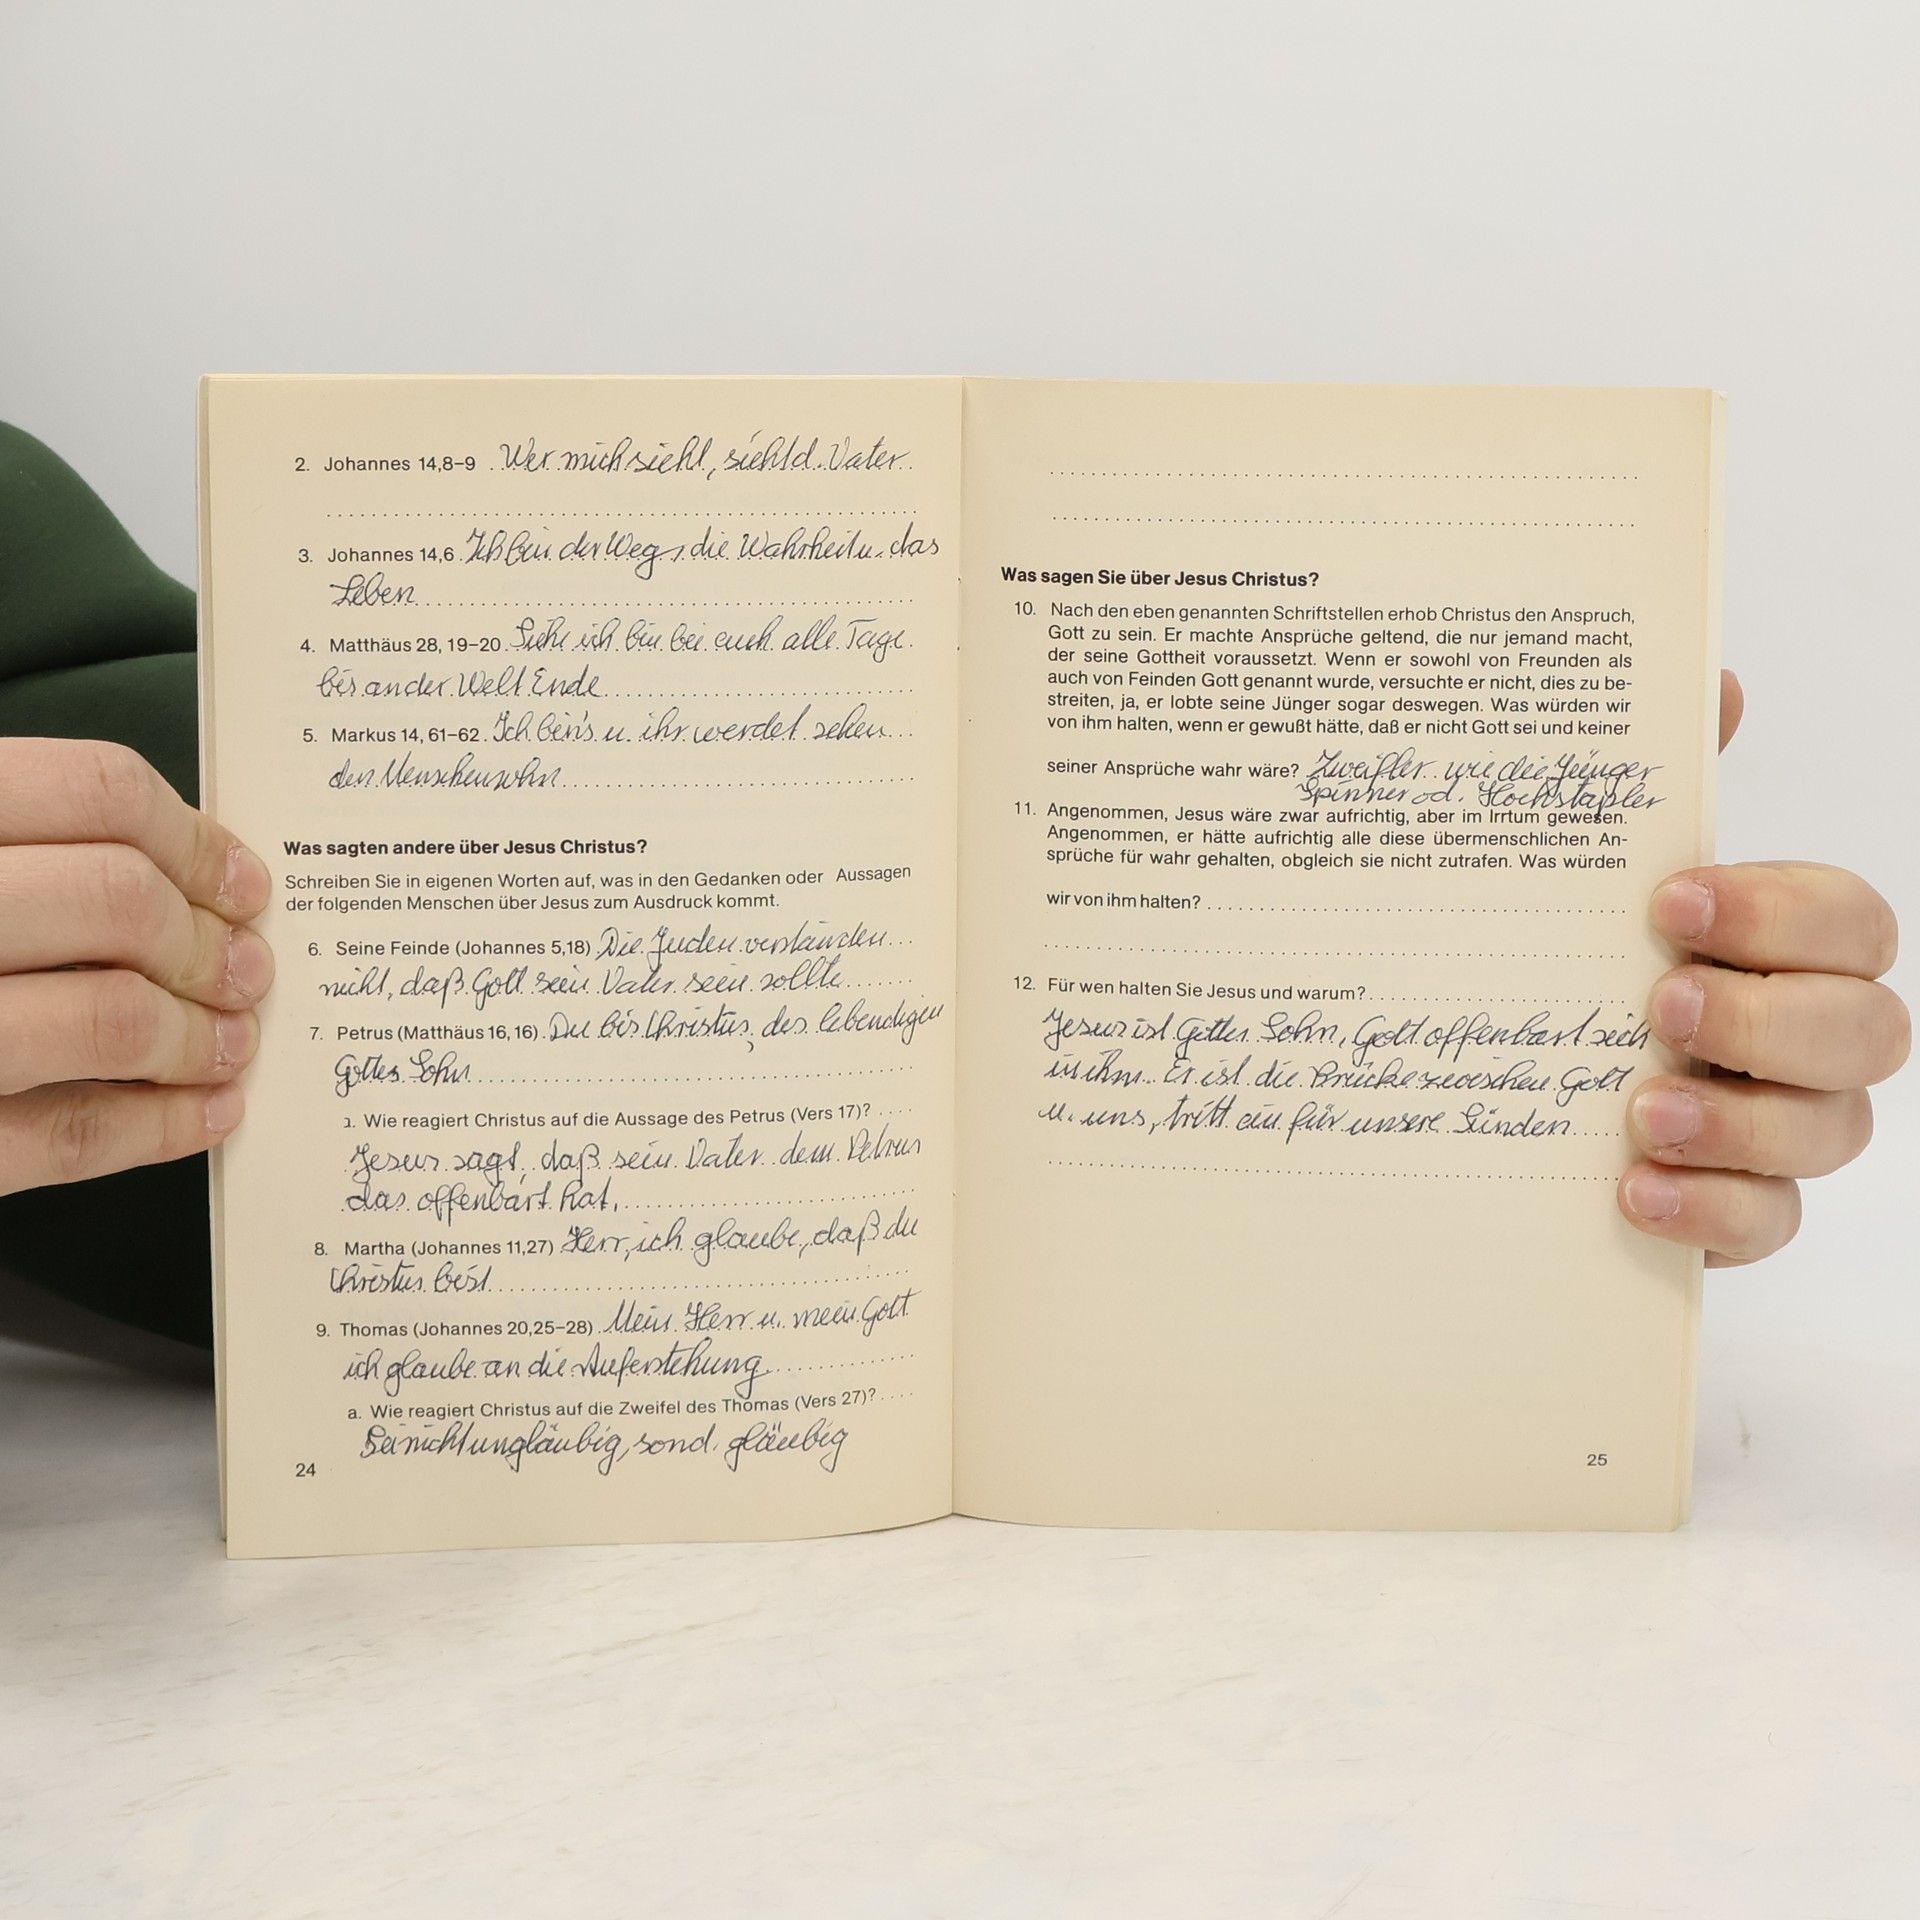 2. Johannes 14,8–9 Wer mich sieht, sieht d. Vater
3. Johannes 14,6 Ich bin der Weg, die Wahrheit u. das
Leben
4. Matthäus 28, 19–20 Siehe ich bin bei euch alle Tage
bis an der Welt Ende
5. Markus 14, 61–62 Ich bin's u. ihr werdet sehen
den Menschensohn
Was sagten andere über Jesus Christus?
Schreiben Sie in eigenen Worten auf, was in den Gedanken oder Aussagen
der folgenden Menschen über Jesus zum Ausdruck kommt.
6. Seine Feinde (Johannes 5,18) Die Juden verstanden
nicht, daß Gott sein Vater sein sollte
7. Petrus (Matthäus 16, 16) Du bis Christus, des lebendigen
Gottes Sohn
a. Wie reagiert Christus auf die Aussage des Petrus (Vers 17)?
Jesus sagt, daß sein Vater dem Petrus
das offenbart hat.
8. Martha (Johannes 11,27) Herr, ich glaube, daß du
Christus bist
9. Thomas (Johannes 20,25–28) Mein Herr u. mein Gott
ich glaube an die Auferstehung
a. Wie reagiert Christus auf die Zweifel des Thomas (Vers 27)?
Sei nicht ungläubig, sond. gläubig
24
Was sagen Sie über Jesus Christus?
10. Nach den eben genannten Schriftstellen erhob Christus den Anspruch,
Gott zu sein. Er machte Ansprüche geltend, die nur jemand macht,
der seine Gottheit voraussetzt. Wenn er sowohl von Freunden als
auch von Feinden Gott genannt wurde, versuchte er nicht, dies zu be-
streiten, ja, er lobte seine Jünger sogar deswegen. Was würden wir
von ihm halten, wenn er gewußt hätte, daß er nicht Gott sei und keiner
seiner Ansprüche wahr wäre? Zweifler wie die Jünger
Spinner od. Hochstapler
11. Angenommen, Jesus wäre zwar aufrichtig, aber im Irrtum gewesen.
Angenommen, er hätte aufrichtig alle diese übermenschlichen An-
sprüche für wahr gehalten, obgleich sie nicht zutrafen. Was würden
wir von ihm halten?
12. Für wen halten Sie Jesus und warum?
Jesus ist Gottes Sohn, Gott offenbart sich
in ihm. Er ist die Brücke zwischen Gott
u. uns, tritt ein für unsere Sünden
25